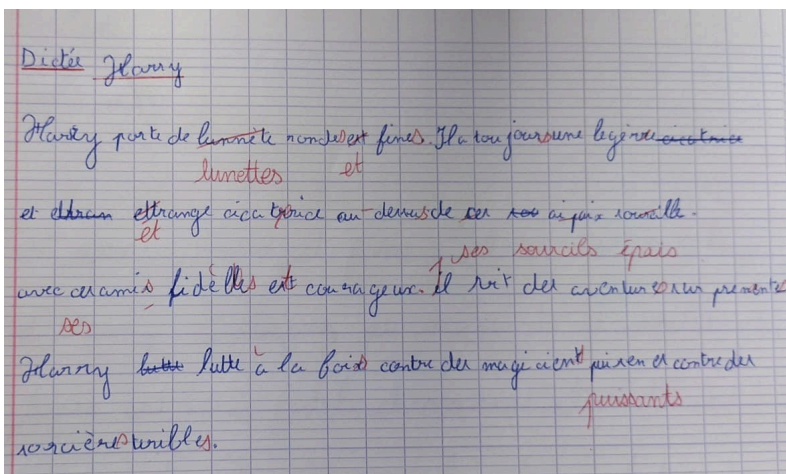 Dictée Harry
Harry porte de lunnète rondes et fines. Il a toujours une légère cicatrice
lunettes et
et ettrange cicatrice au-dessus de ces
et ses sourcils épais
avec ces amis fidèlles et courageux. Il vit des aventures surprenantes
ses
Harry lutte à la fois contre des magicient puisen et contre des
puissants
sorcières terribles.